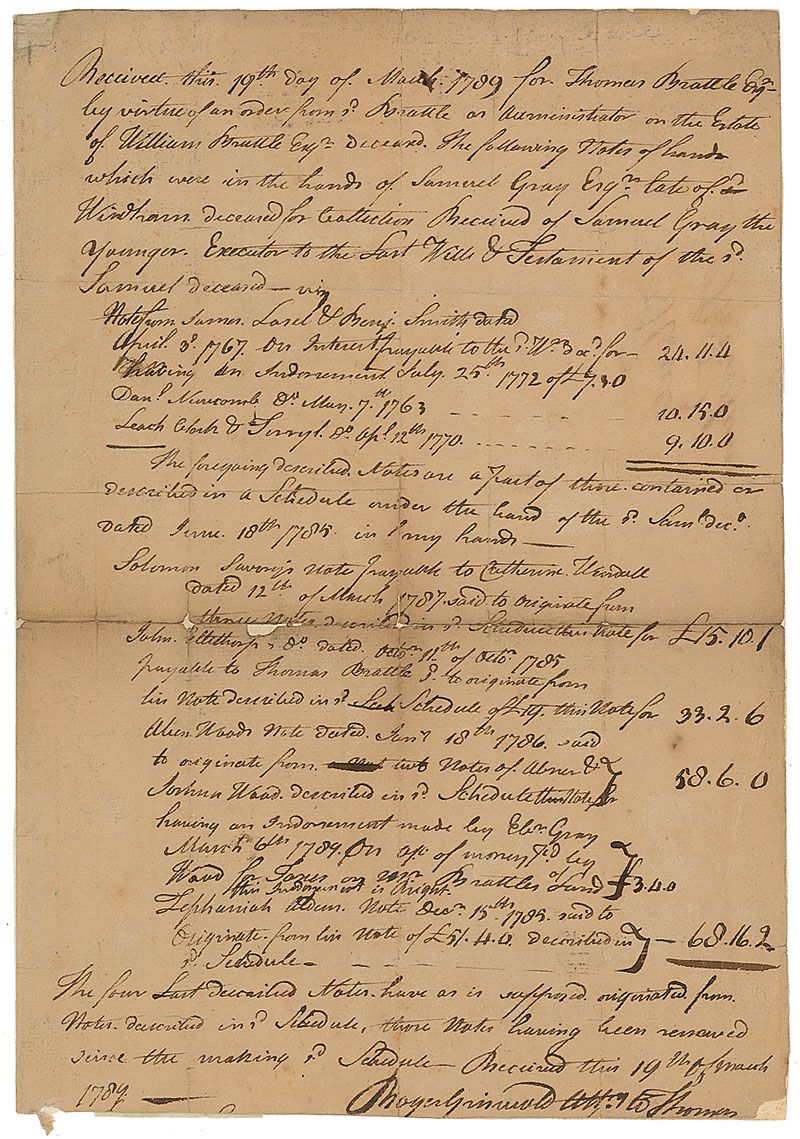 Received this 19th day of March 1789 for Thomas Brattle Esqr
by virtue of an order from sd Brattle as Administrator on the Estate
of William Brattle Esqr deceased. The following Notes of hand
which were in the hands of Samuel Gray Esqr late of
Windham deceased for Collection Received of Samuel Gray the
Younger Executor to the Last Will & Testament of the sd
Samuel deceased — viz
Note from James Lasel & Benj. Smith dated
April 3d 1767. On Interest payable to the sd Wm decd for — 24.11.4
having an Indorsement July 25th 1772 of £7.3.0
Danl Newcomb do May 7th 1763 10.15.0
Leach Clark & Terryl do Apl 12th 1770 9.10.0
The foregoing described Notes are a part of those contained or
described in a Schedule under the hand of the sd Saml decd
dated June 18th 1785 in my hands —
Solomon Savery's Note payable to Catherine Wendell
dated 12th of March 1787 said to originate from
three Notes described in sd Schedule this Note for £15.10.1
John do dated Octor 11th of Octor 1785
payable to Thomas Brattle sd to originate from
his Note described in sd Schedule of £19. this Note for 33.2.6
Abner Woods Note dated Jany 18th 1786 said
to originate from two Notes of Abner &
Joshua Wood described in sd Schedule this Note for 58.6.0
having an Indorsement made by Ebr Gray
March 6th 1789. On of money pd by
Wood for Taxes on Mr Brattles Land £3.4.0
this Indorsement is Right
Zephaniah Alden Note Decr 15th 1785 said to
Originate from his Note of £51.4.0 described in — 68.16.2
sd Schedule —
The four Last described Notes have as is supposed originated from
Notes described in sd Schedule, those Notes having been renewed
since the making sd Schedule — Received this 19th of March
1789. — Roger Griswold Atty to Thomas